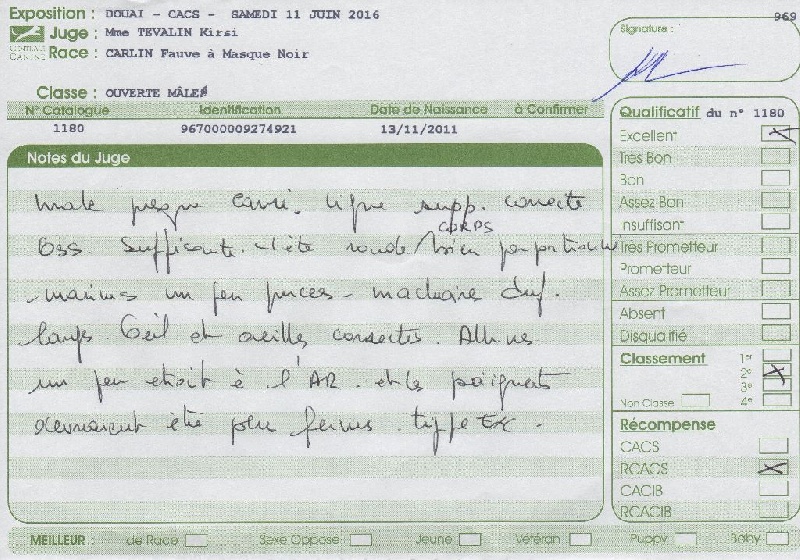 Exposition : DOUAI - CACS - SAMEDI 11 JUIN 2016
969
Juge : Mme TEVALIN Kirsi
Signature :
CENTRALE CANINE
Race : CARLIN Fauve à Masque Noir
Classe : OUVERTE MÂLES
N° Catalogue Identification Date de Naissance à Confirmer
1180 967000009274921 13/11/2011
Qualificatif du n° 1180
Excellent
Très Bon
Bon
Assez Bon
Insuffisant
Très Prometteur
Prometteur
Assez Prometteur
Absent
Disqualifié
Classement 1er
2e
3e
Non Classé 4e
Récompense
CACS
RCACS
CACIB
RCACIB
Notes du Juge
male presque carré. ligne supp. correcte
Oss suffisante. tête ronde / CORPS bien proportionné
narines un peu pincées - machoire inf.
large. Oeil et oreilles correctes. Allures
un peu etroit à l'AR. et les poignets
devraient être plus fermes. type
MEILLEUR : de Race Sexe Opposé Jeune Vétéran Puppy Baby